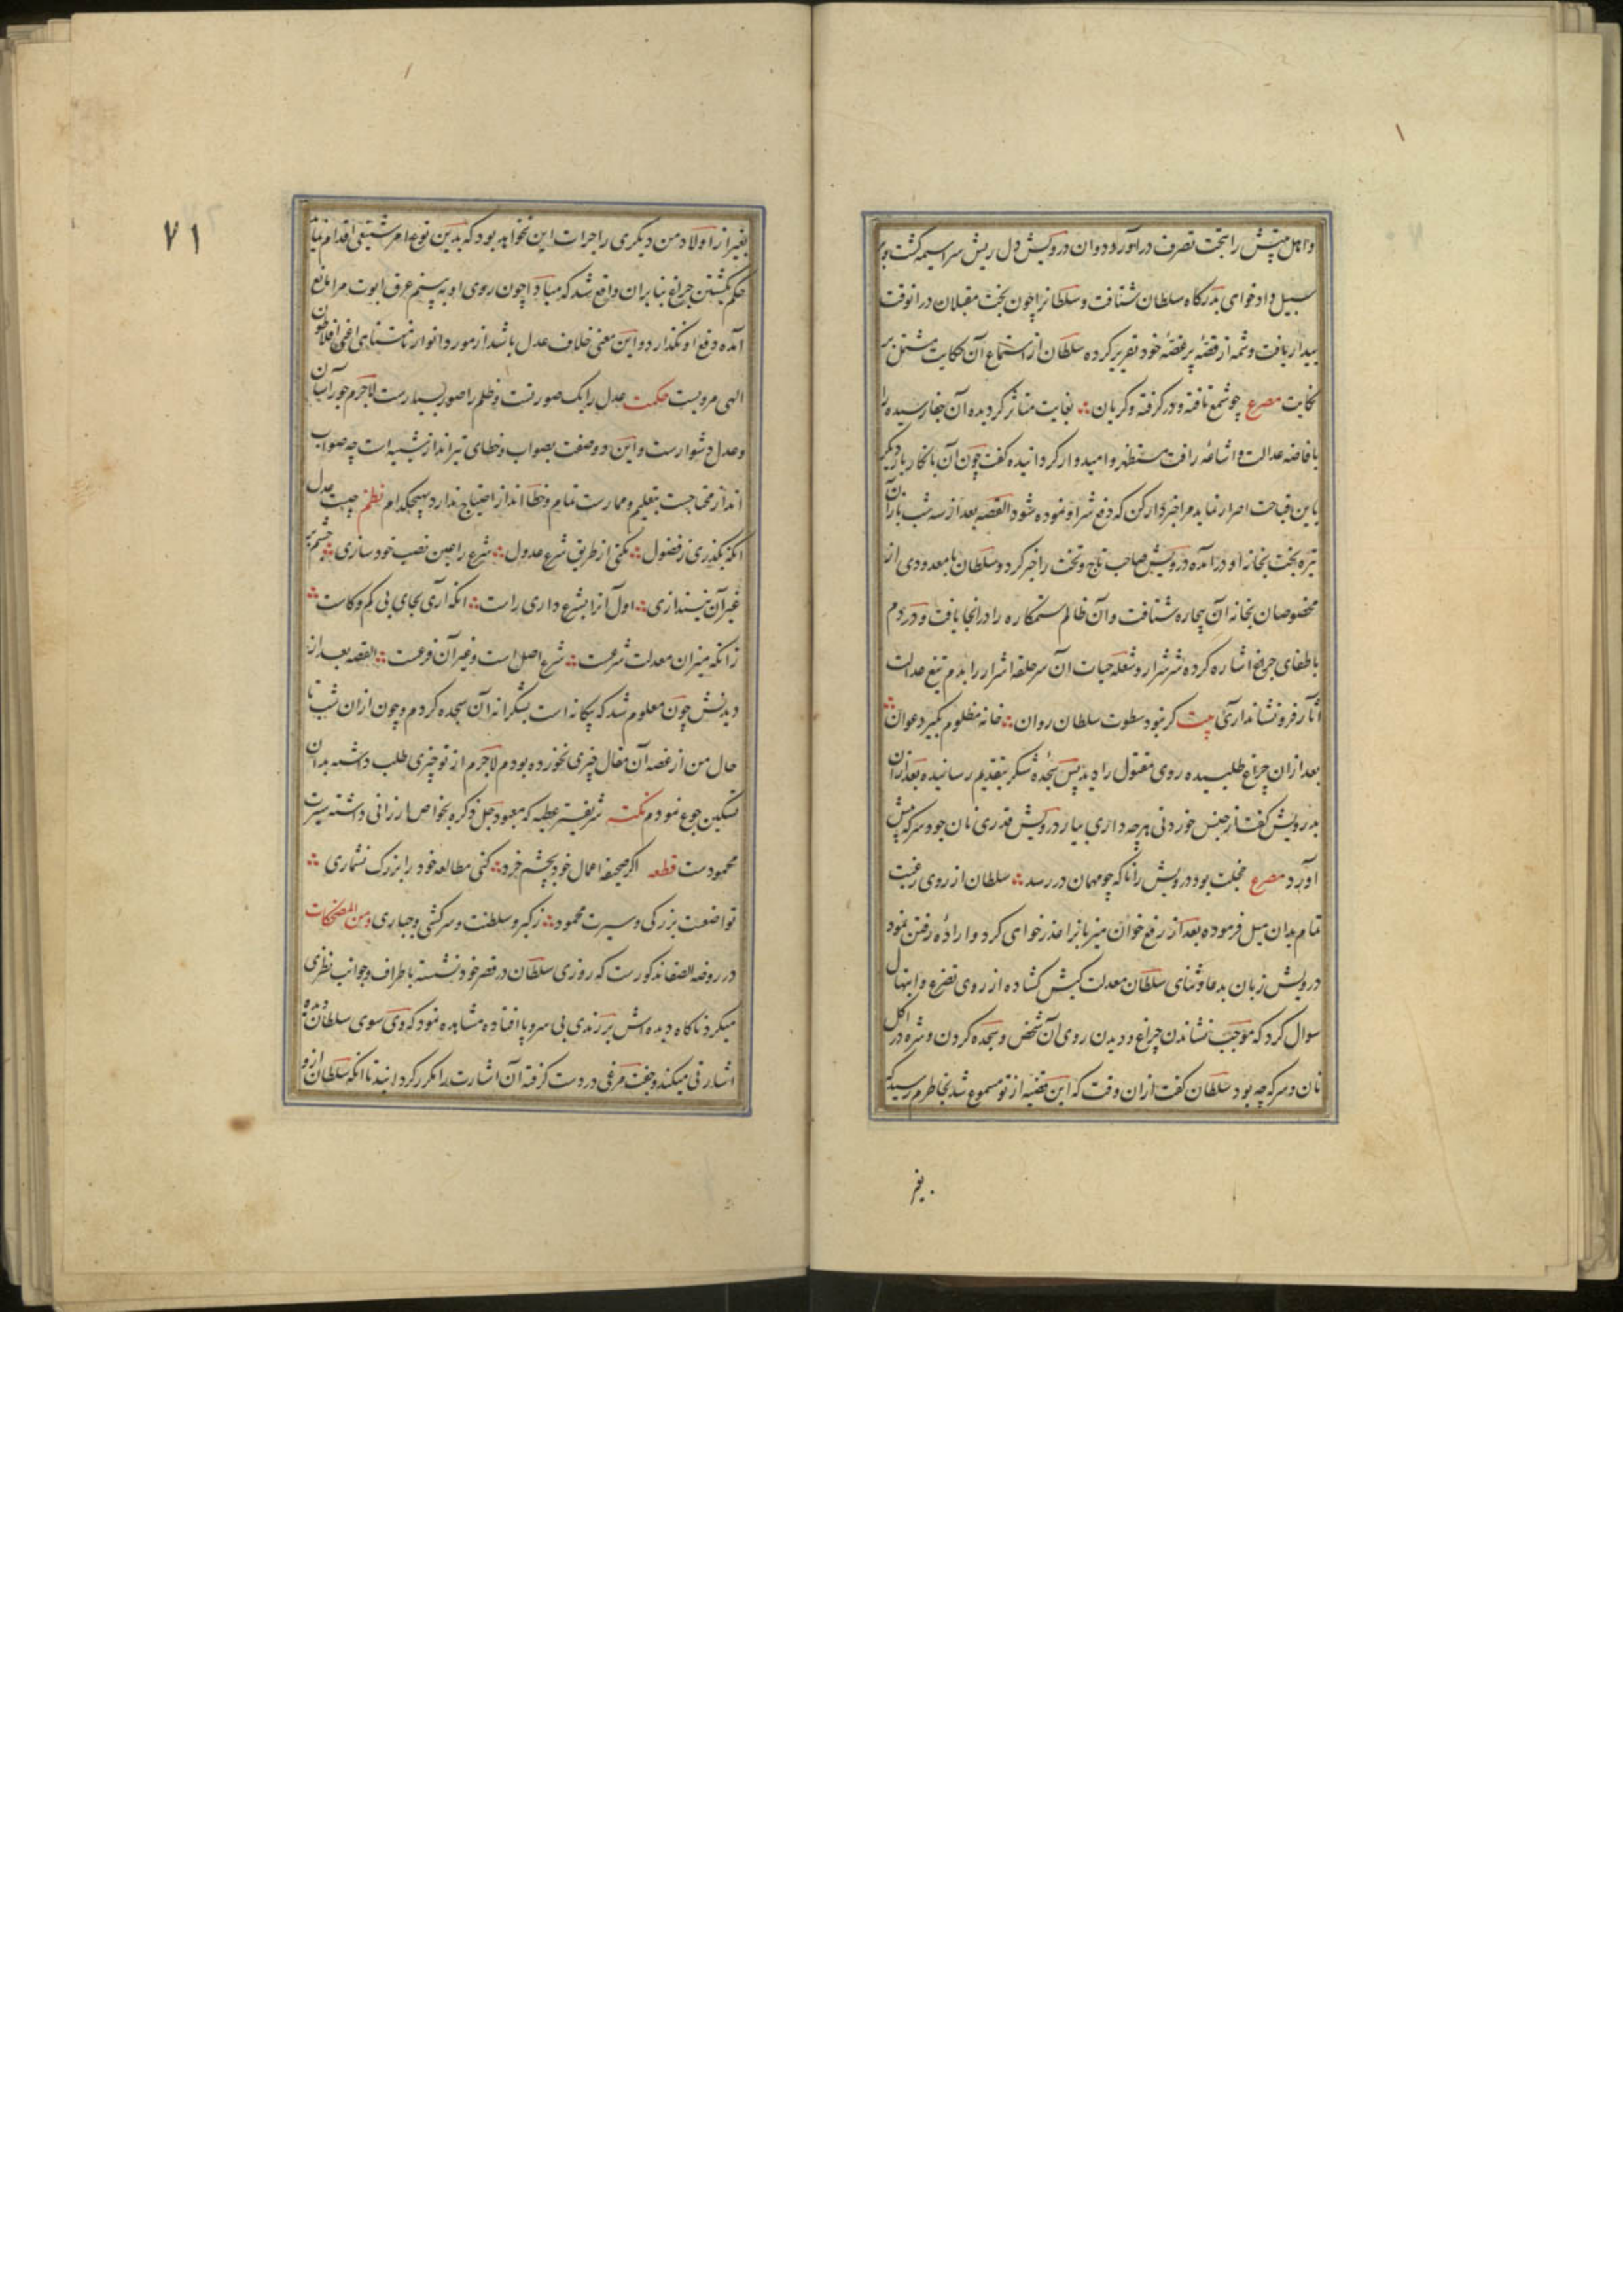 و اهل بیتش را بتحت تصرف درآورد دوان درویش دل ریش سراسیمه گشت و بر
سبیل دادخواهی بدرگاه سلطان شتافت و سلطانرا چون بخت مقبلان در انوقت
بیدار یافت و شمهٔ از قصهٔ پرغصهٔ خود تقریر کرده سلطان از استماع آن حکایت مشتمل بر
نکایت مصرع چو شمع تافته و در گرفته و گریان بغایت متاثر گردیده آن جفا رسیده را
بافاضه عدالت و اشاعهٔ رافت مستظهر و امیدوار گردانیده گفت چون آن نابکار بار دیگر
باین قباحت اصرار نماید مرا خبردار کن که دفع شر او نموده شود القصه بعد از سه شب باز آن
تیره بخت بخانه او درآمده درویش صاحب تاج و تخت را خبر کرد و سلطان با معدودی از
مخصوصان بخانه آن بیچاره شتافت و آن ظالم ستمکاره را در انجا یافت و در دم
باطفای چراغ اشاره کرده شرر شرار و شعله حیات ان سر حلقه اشرار را بدم تیغ عدالت
آثار فرو نشاند آری بیت گر نبود سطوت سلطان روان خانه مظلوم بگیرد عوان
بعد ازان چراغ طلبیده روی مقتول را دید پس سجدهٔ شکر بتقدیم رسانیده بعد ازان
بدرویش گفت از جنس خوردنی هرچه داری بیار درویش قدری نان جو و سرکه پیش
آورد مصرع مخجلت بود درویش را ناگه چو مهمان در رسد سلطان از روی رغبت
تمام بدان میل فرموده بعد از رفع خوان میزبانرا عذر خواهی کرد و ارادهٔ رفتن نمود
درویش زبان بدعا و ثنای سلطان معدلت کیش گشاده از روی تضرع و ابتهال
سوال کرد که موجب نشاندن چراغ و دیدن روی آن شخص و سجده کردن و شره در اکل
نان و سرکه چه بود سلطان گفت ازان وقت که این قضیه از تو مسموع شد بخاطرم رسید که
بغیر
۷۱
بغیر از اولاد من دیگری را جرات این نخواهد بود که بدین نوع امر شنیعی اقدام نماید
حکم بکشتن چراغ بنابران واقع شد که مبادا چون روی او به بینم عرق ابوت مرا مانع
آمده دفع او نکند ارد و این معنی خلاف عدل باشد از مورد انوار نامتناهی اعنی افلاطون
الهی مرویست حکمت عدل را یک صورتست و ظلم را صور بسیارست لاجرم جور آسان
و عدل دشوارست و این دو وصفت بصواب و خطای تیرانداز شبیه است چه صواب
انداز محتاجست بتعلیم و ممارست تمام و خطا انداز احتیاج ندارد بهیچکدام نظم چیست عدل
آنکه بگذری ز فضول نکنی از طریق شرع عدول شرع را عین نصب خود سازی چشم بر
غیر آن نیندازی اول آنرا بشرع داری راست آنکه آری بجای بی کم و کاست
زانکه میزان معدلت شرعست شرع اصل است و غیر آن فرعست القصه بعد از
دیدنش چون معلوم شد که بیگانه است بشکرانه آن سجده کردم و چون ازان شب تا
حال من از غصه آن مقال چیزی نخورده بودم لاجرم از تو چیزی طلب داشته بدان
تسکین جوع نمودم نکته شریفتر عطیه که معبود جل ذکره بخواص ارزانی داشته سیرت
محمودست قطعه اگر صحیفه اعمال خود بچشم خرد کنی مطالعه خود را بزرگ نشماری
تواضعست بزرگی و سیرت محمود ز کبر و سلطنت و سرکشی و جباری و من المضحکات
در روضه الصفا مذکورست که روزی سلطان در قصر خود نشسته باطراف و جوانب نظری
میکرد ناگاه دیده اش بر رندی بی سر و پا افتاده مشاهده نمود که وی سوی سلطان دیده
اشارتی میکند و جفت مرغی در دست گرفته آن اشارت را مکرر گردانید تا آنکه سلطان ازو